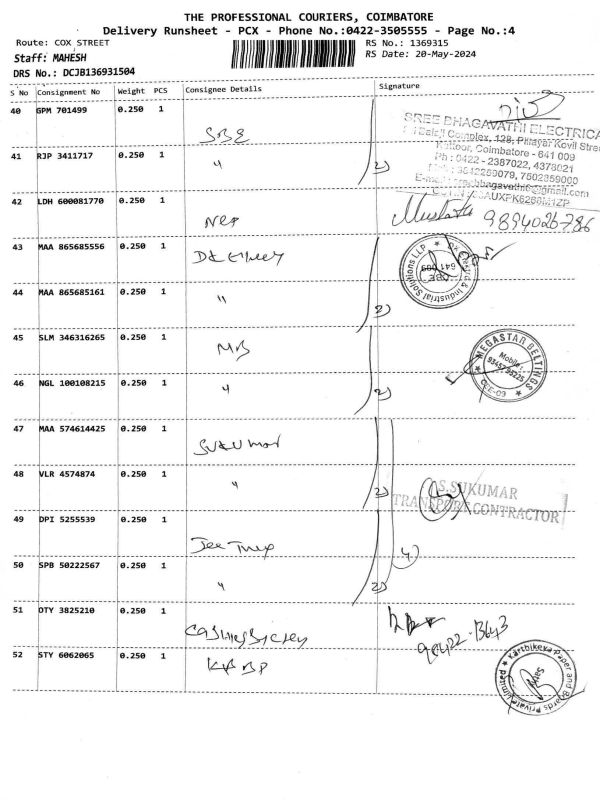 THE PROFESSIONAL COURIERS, COIMBATORE
Delivery Runsheet - PCX - Phone No.:0422-3505555 - Page No.:4
Route: COX STREET
RS No.: 1369315
Staff: MAHESH
RS Date: 20-May-2024
DRS No.: DCJB136931504
S No Consignment No Weight PCS Consignee Details Signature
40 GPM 701499 0.250 1 SBE
SREE BHAGAVATHI ELECTRICA
Balaji Complex, 128, Pillayar Kovil Stre
41 RJP 3411717 0.250 1 " 2)
Coimbatore - 641 009
Ph : 0422 - 2387022, 4378021
7502359000
42 LDH 600081770 0.250 1 NRP
Mustafa 9894026786
43 MAA 865685556 0.250 1
& Industrial Solutions LLP
641 009
CBE
44 MAA 865685161 0.250 1 " 2)
45 SLM 346316265 0.250 1 MB
MEGASTAR BELTINGS
Mobile:
CBE-09
46 NGL 100108215 0.250 1 " 2)
47 MAA 574614425 0.250 1 Sukumar
48 VLR 4574874 0.250 1 " 2)
S.SUKUMAR
TRANSPORT CONTRACTOR
49 DPI 5255539 0.250 1 4)
50 SPB 50222567 0.250 1 " 2)
51 OTY 3825210 0.250 1
52 STY 6062065 0.250 1 KPBP
Karthikeya Paper and Boards Private Limited